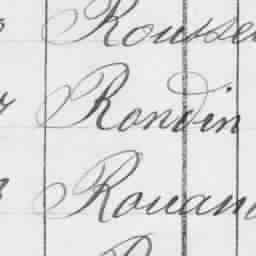 Rousse
Rondin
Rouan